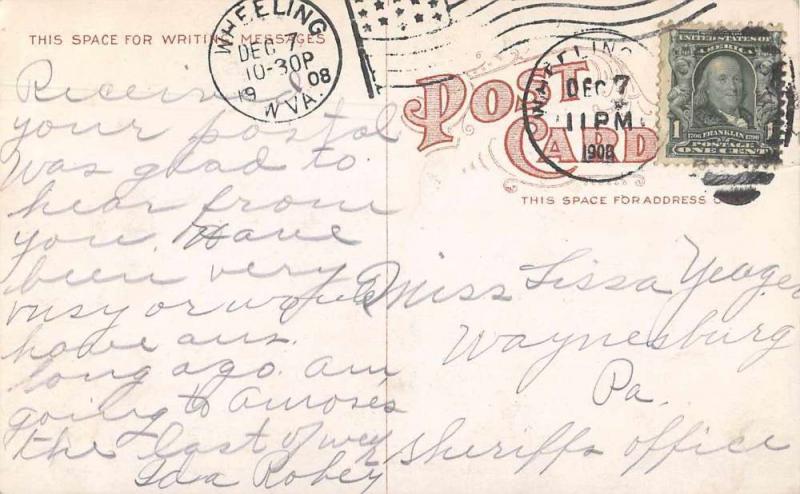 THIS SPACE FOR WRITING MESSAGES
WHEELING
DEC 7
10-30P
1908
W VA.
POST
CARD
WHEELING
DEC 7
11 PM
1908
UNITED STATES OF
AMERICA
1
1706 FRANKLIN 1790
POSTAGE
ONE CENT
THIS SPACE FOR ADDRESS O
Received
your postal
was glad to
hear from
you. Have
been very
busy or would
have ans.
long ago. am
going to Amoses
the last of week
Ida Robey
Miss Lissa Yeager
Waynesburg
Pa.
Sheriffs office